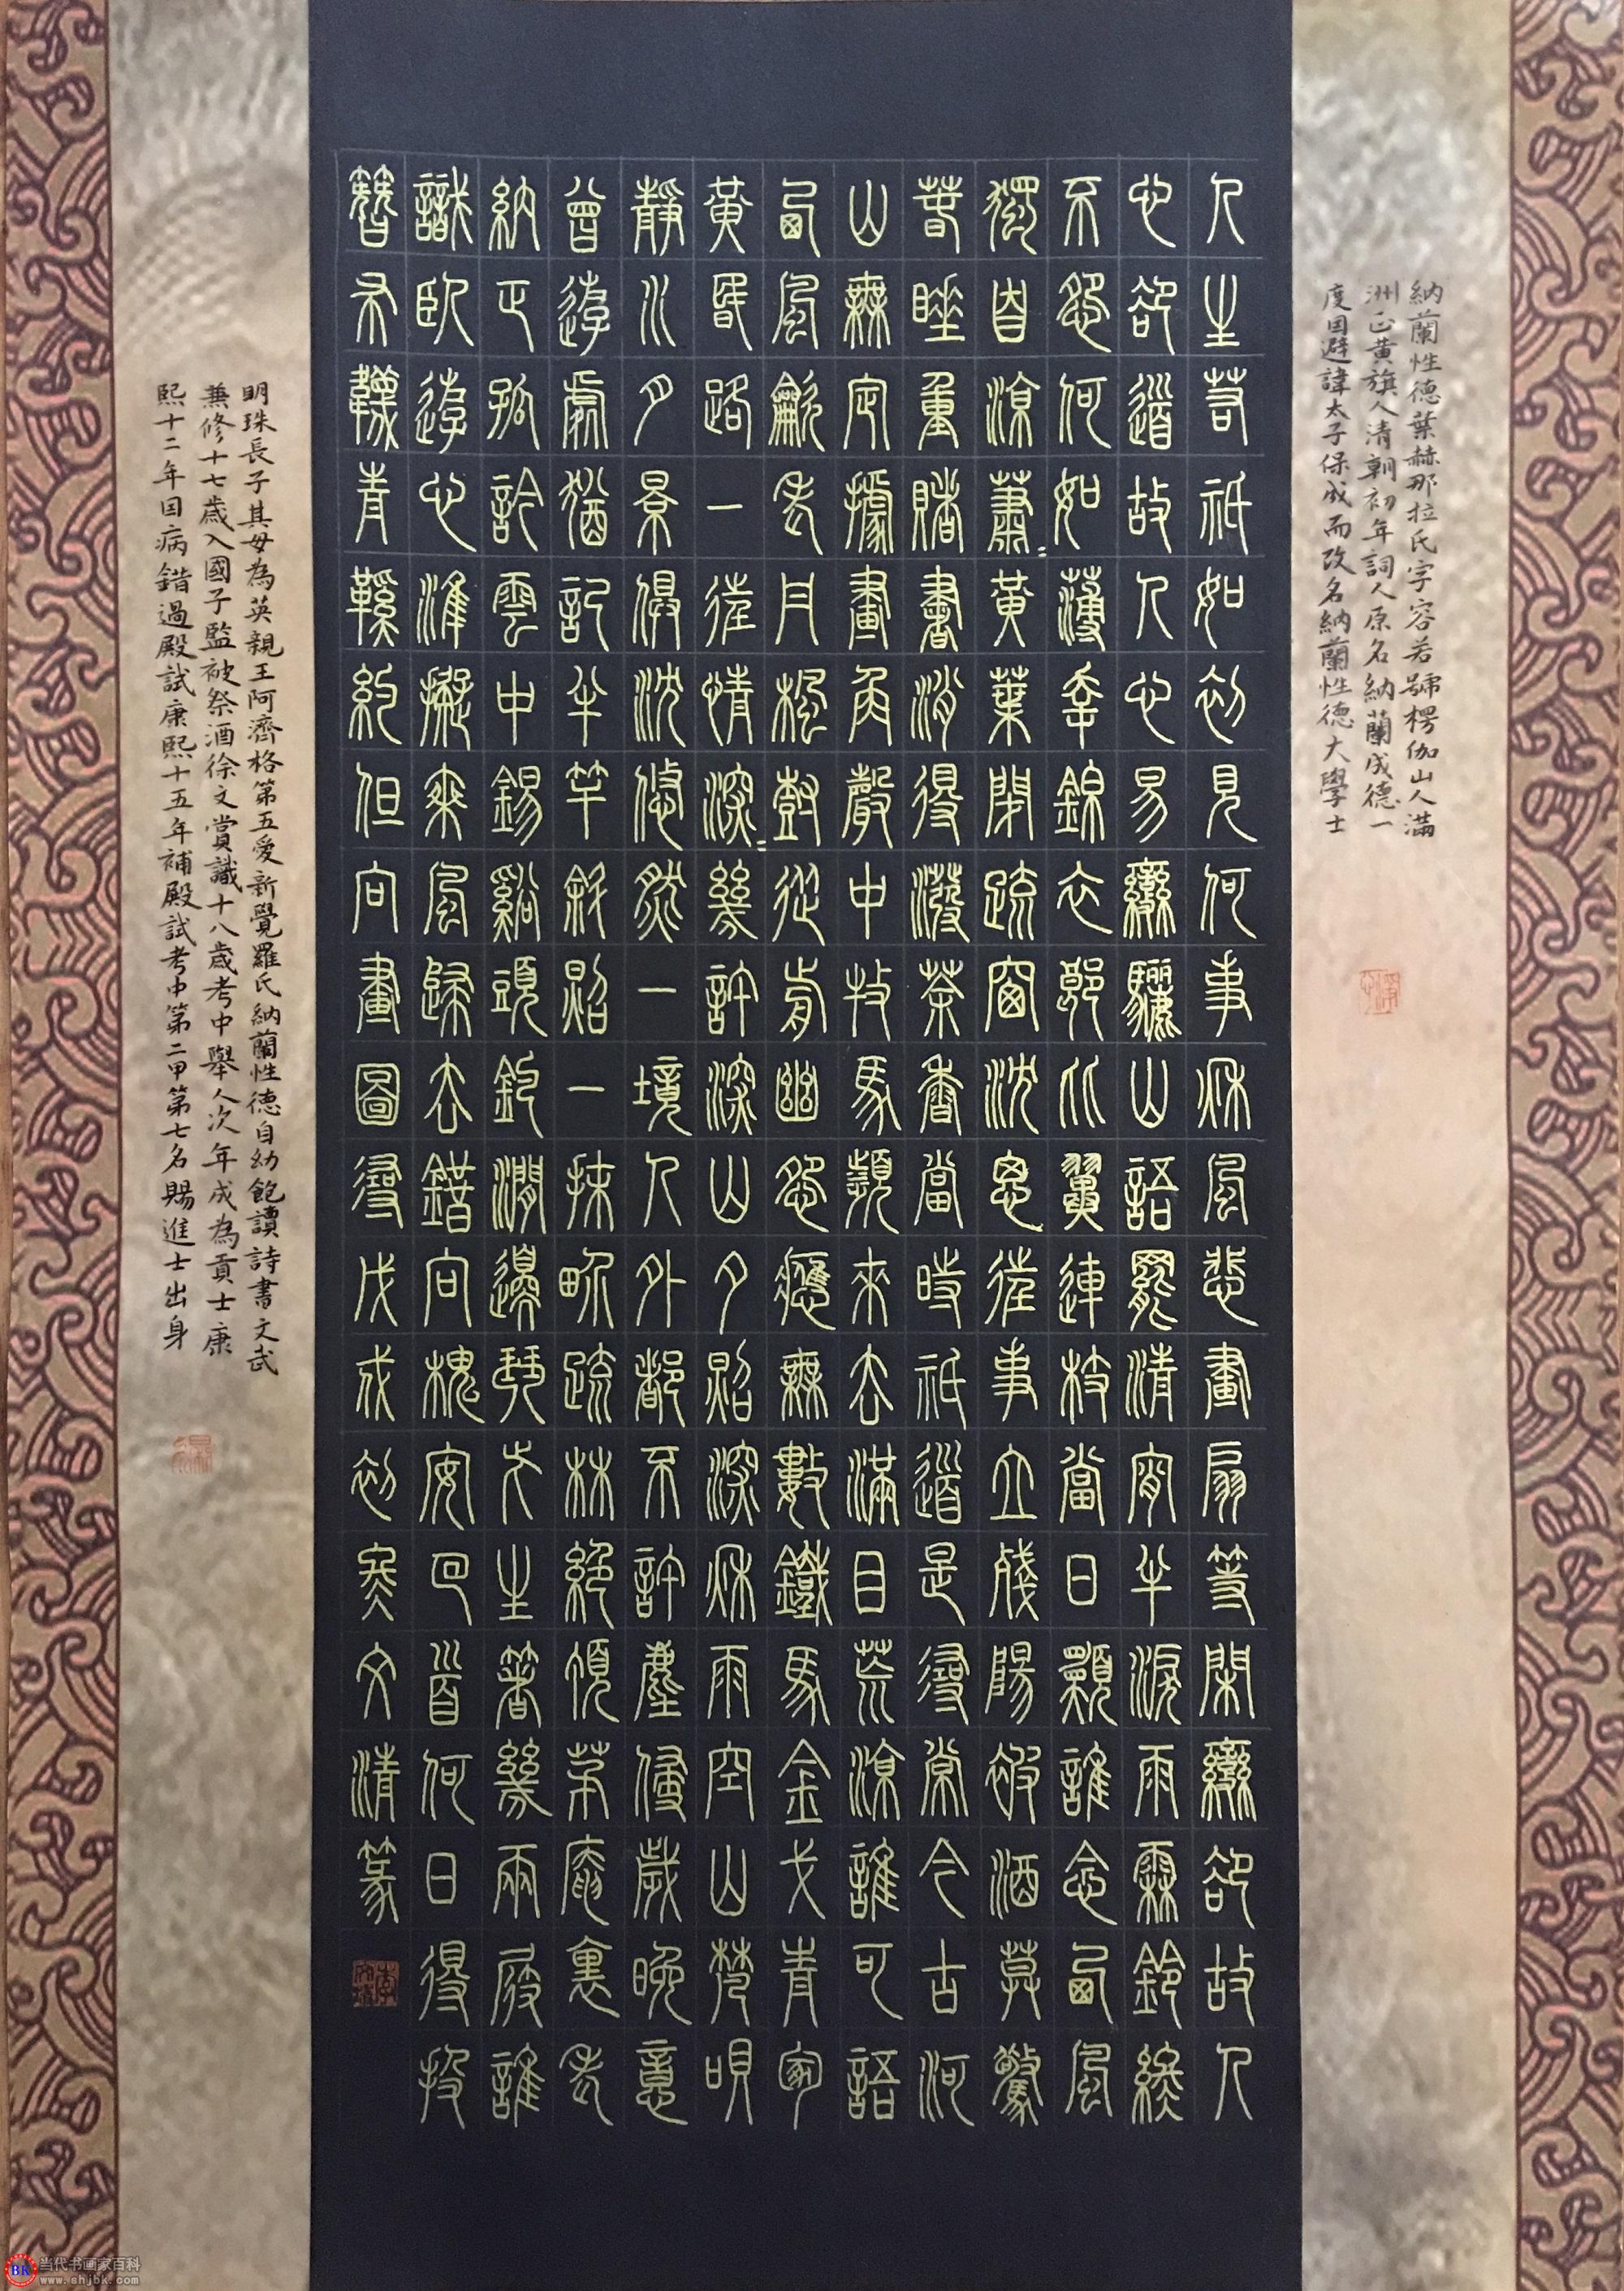 納蘭性德葉赫那拉氏字容若號楞伽山人滿
洲正黃旗人清朝初年詞人原名納蘭成德一
度因避諱太子保成而改名納蘭性德大學士
人生若祇如初見何事秋風悲畫扇等閑變卻故人
心卻道故人心易變驪山語罷清宵半淚雨霖鈴終
不怨何如薄幸錦衣郎比翼連枝當日願誰念西風
獨自涼蕭=黃葉閉疏窗沈思往事立殘陽被酒莫驚
春睡重賭書消得潑茶香當時祇道是尋常今古河
山無定據畫角聲中牧馬頻來去滿目荒涼誰可語
西風吹老丹楓樹從前幽怨應無數鐵馬金戈青冢
黃昏路一往情深=幾許深山夕照深秋雨空山梵唄
靜水月景俱沈悠然一境人外都不許塵侵歲晚憶
曾遊處猶記半竿斜照一抹界疏林絕頂茅庵裏老
納正孤吟雲中錫谿頭釣澗邊琴此生著幾兩屐誰
識臥遊心準擬乘風歸去錯向槐安回首何日得投
簪布襪青鞋約但向畫圖尋戊戌初冬文清篆
明珠長子其母為英親王阿濟格第五愛新覺羅氏納蘭性德自幼飽讀詩書文武
兼修十七歲入國子監被祭酒徐文賞識十八歲考中舉人次年成為貢士康
熙十二年因病錯過殿試康熙十五年補殿試考中第二甲第七名賜進士出身
BK 当代书画家百科
www.shjbk.com